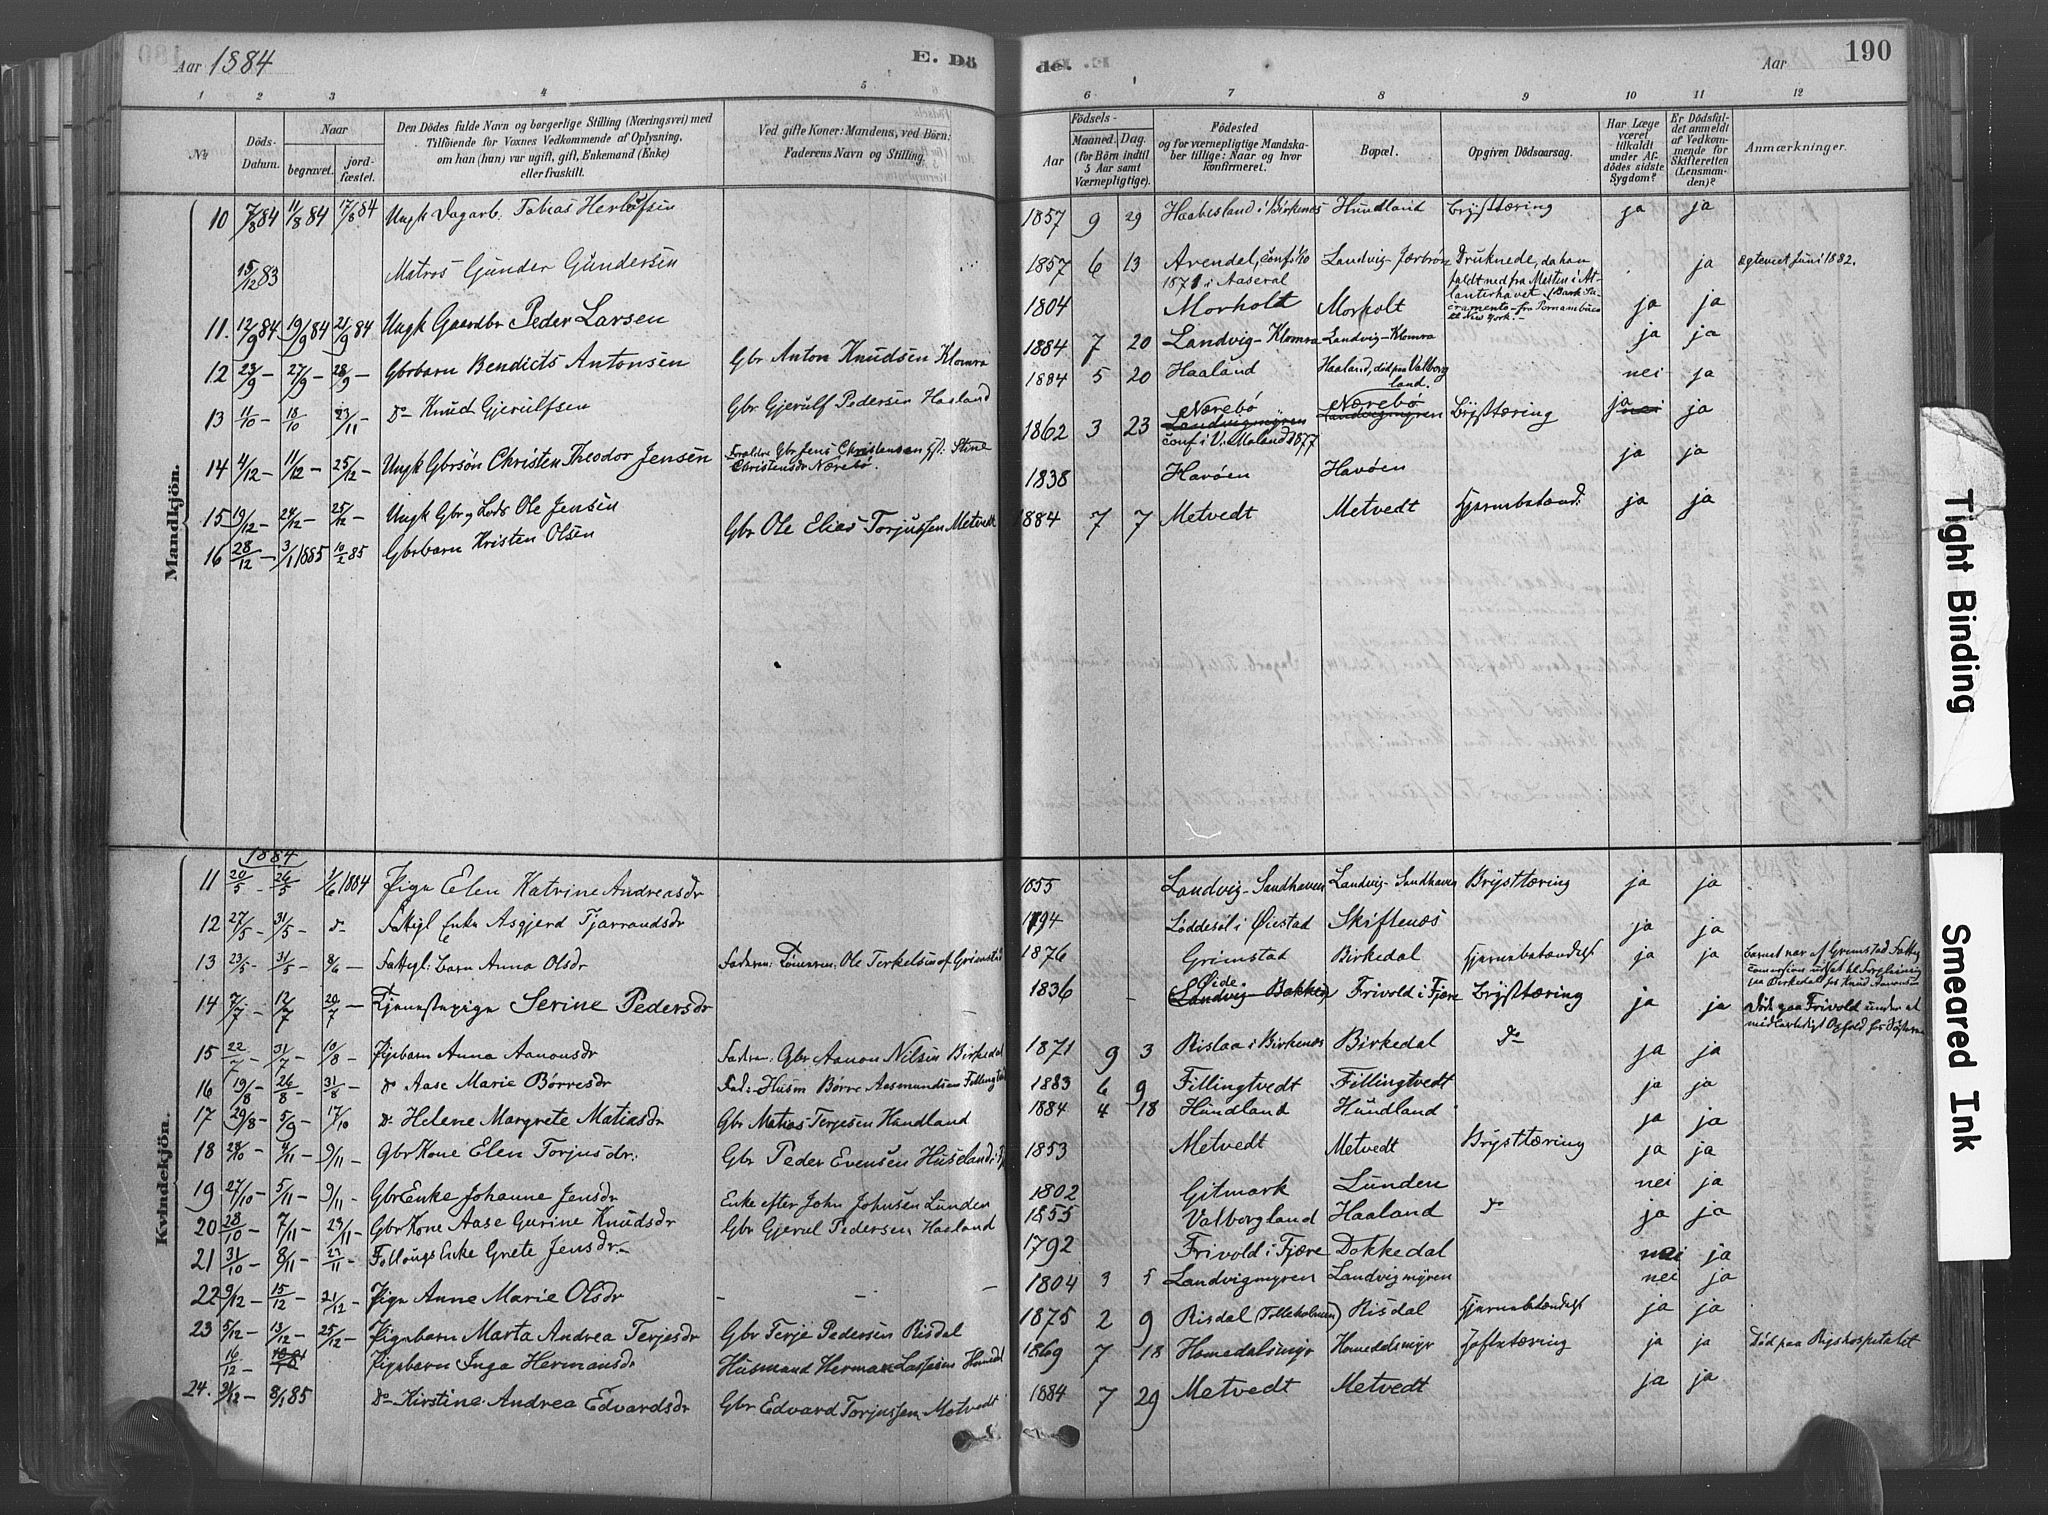 Aar 1884
E. Dö
de.
Aar
190
1 2 3 4 5 6 7 8 9 10 11 12
No
Döds-Datum.
Naar
begravet. jord-fæstet.
Den Dödes fulde Navn og borgerlige Stilling (Næringsvei) med
Tilföiende for Voxnes Vedkommende af Oplysning,
om han (hun) var ugift, gift, Enkemand (Enke)
eller fraskilt.
Ved gifte Koner: Mandens, ved Börn:
Faderens Navn og Stilling.
Födsels-
Aar Maaned. Dag.
(for Börn indtil
5 Aar samt
Værnepligtige).
Födested
og for værnepligtige Mandska-
ber tillige: Naar og hvor
konfirmeret.
Bopæl.
Opgiven Dödsaarsag.
Har Læge
været
tilkaldt
under Af-
dödes sidste
Sygdom?
Er Dödsfal-
det anmeldt
af Vedkom-
mende for
Skifteretten
(Lensman-
den)?
Anmærkninger.
Mandkjön.
10 7/8 84 11/8 84 17/8 84 Ungk Dagarb. Tobias Herlofsen 1857 9 29 Haabesland i Birkenes Hundland Brysttæring ja ja
15/12 83 Matros Gunder Gundersen 1857 6 13 Arendal, conf. 1871 i Aaseral Landvig Druknede, da han faldt ned fra Masten i Atlanterhavet (Bark Sacramento fra Pernambuco til New York. ja Egteviet Juni 1882.
11. 12/9 84 19/9 84 21/9 84 Ungk Gaardbr Peder Larsen 1804 Morholt Morholt ja ja
12 23/9 – 27/9 – 28/9 – Gbrbarn Bendicts Antonsen Gbr Anton Knudsen Klomra 1884 7 20 Landvig-Klomra Landvig-Klomra ja ja
13 11/10 – 18/10 23/11 – Do Knud Gjerulfsen Gbr Gjerulf Pedersen Haaland 1884 5 20 Haaland Haaland, död paa Valborgland. nei ja
14 4/12 – 11/12 – 25/12 – Ungk Gbrsön Christen Theodor Jensen Foraldre Gbr Jens Christensen og Stine Christensdr Nærebø. 1862 3 23 Nærebø Landvigmyren conf i V. Moland 1877 Nærebø Landvigmyren Brysttæring ja nei ja
15 19/12 – 24/12 – 25/12 – Ungk Gbr og Lods Ole Jensen 1838 Havöen Havöen ja ja
16 28/12 – 3/1 1885 10/2 85 Gbrbarn Kristen Olsen Gbr Ole Elias Torjussen Metvedt 1884 7 7 Metvedt Metvedt Hjernebetænd: ja ja
Kvindekjön.
1884
11 20/5 – 26/5 1/6 1884 Pige Elen Katrine Andreasdr 1855 Landvig-Sandhaven Landvig-Sandhaven Brysttæring ja ja
12 27/5 – 31/5 – Do Fattigl Enke Asgjerd Tjarrandsdr 1794 Løddesøl i Øiestad Skiftenæs ja ja
13 23/5 – 31/5 – 8/6 – Fattigl: Barn Anna Olsdr Faderen: Tømmerm: Ole Terkelsen af Grimstad 1876 Grimstad Birkedal Hjernebetændelse ja ja Barnet var af Grimstad Fattig comission udsat til Forpleining paa Birkedal hos Knud Aanonsen
14 7/7 – 12/7 20/7 Tjenestepige Serine Pedersdr 1836 – Øide. Landvig-Bakken Frivold i Fjære Brysttæring ja ja Döde paa Frivold under et midlertidigt Ophold hos Søsteren
15 22/7 – 31/7 – 10/8 – Pigebarn Anna Aanonsdr Faderen: Gbr Aanon Nilsen Birkedal 1871 9 3 Rislaa i Birkenæs Birkedal Do ja ja
16 19/8 – 26/8 – 31/8 – Do Aase Marie Börresdr Fad: Husm Börre Aasmundsen Fillingtvedt 1883 6 9 Fillingtvedt Fillingtvedt ja ja
17 29/8 – 5/9 – 17/10 Do Helene Margrete Matiasdr Gbr Matias Terjesen Hundland 1884 4 18 Hundland Hundland ja ja
18 28/10 – 4/11 – 9/11 – Gbr Kone Elen Torjusdr. Gbr Peder Evensen Huseland 1853 Metvedt Metvedt Brysttæring ja ja
19 27/10 – 5/11 – 9/11 – Gbr Enke Johanne Jensdr Enke efter John Johnsen Lunden 1802 Gitmark Lunden nei ja
20 28/10 – 7/11 – 23/11 – Gbr Kone Aase Gurine Knudsdr Gbr Gjerul Pedersen Haaland 1855 Valborgland Haaland Do ja ja
21 31/10 – 8/11 – 23/11 – Follougs Enke Grete Jensdr 1792 Frivold i Fjære Dokkedal nei ja
22 9/12 – 15/12 – 21/12 – Pige Anne Marie Olsdr – – – 1804 3 5 Landvigmyren Landvigmyren nei ja
23 5/12 – 13/12 – 25/12 – Pigebarn Marta Andrea Terjesdr Gbr Terje Pedersen Risdal 1875 2 9 Risdal (Tolleholmen) Risdal Hjernebetændelse ja ja
16/12 – Pigebarn Inga Hermansdr Husmand Herman Lassesen Homedal 1869 7 18 Homedalsmyr Homedalsmyr Hoftetæring ja ja Död paa Rigshospitalet
24. 31/12 – 8/1 85 Do Kirstine Andrea Edvardsdr Gbr Edvard Torjussen Metvedt 1884 7 29 Metvedt Metvedt ja ja
Tight Binding
Smeared Ink